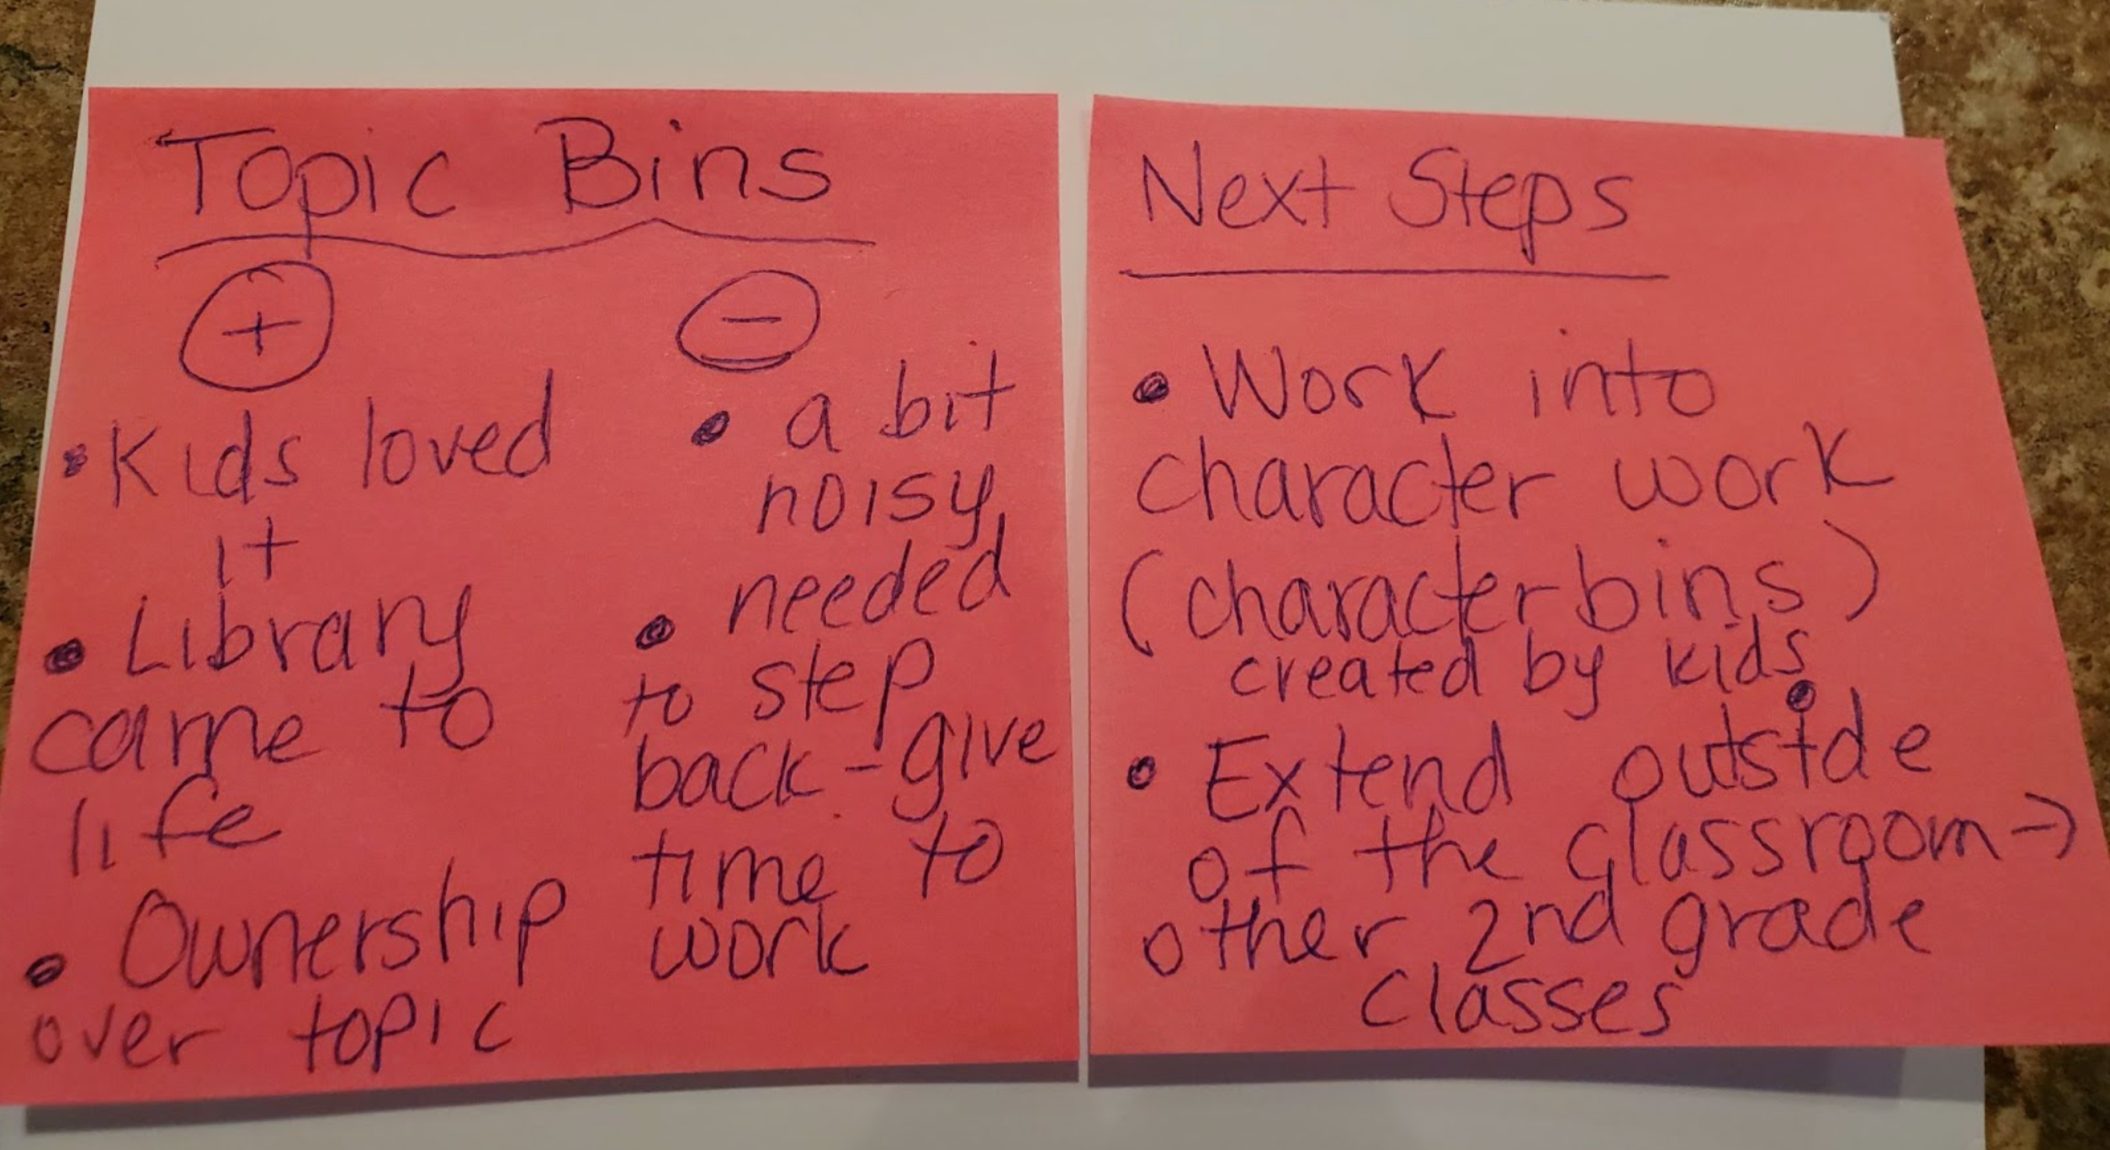 Topic Bins
+
• Kids loved
it
• Library
came to
life
• Ownership
over topic
−
• a bit
noisy
• needed
to step
back - give
time to
work
Next Steps
• Work into
character work
(character bins)
created by kids
• Extend outside
of the classroom →
other 2nd grade
classes